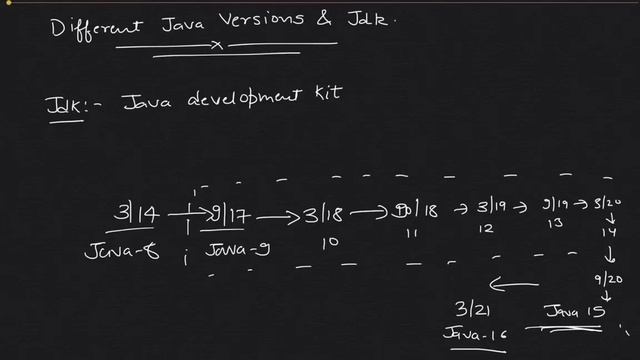 Different Java Versions & Jdk.
Jdk:- Java development kit
3/14 → 9/17 → 3/18 → /18 → 3/19 → 9/19 → 3/20
Java-8 Java-9 10 11 12 13 14
9/20
3/21 Java 15
Java-16